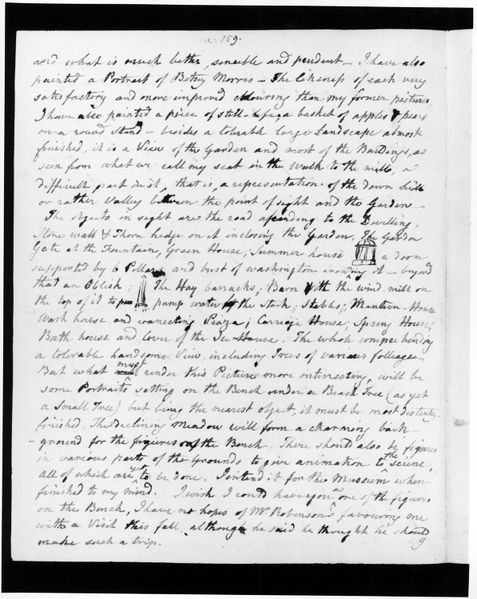 159.
and what is much better, sensible and prudent — I have also
painted a Portrait of Betsy Morris — The likeness of each very
satisfactory and more improved colouring than my former pictures,
I have also painted a piece of still life a basket of apples & pears
on a round stand — besides a tolerable large Landscape almost
finished, it is a View of the Garden and most of the Buildings, as
seen from what we call my seat in the Walk to the mill, a
difficult part in it, that is, a representation of the down hill
or rather Valley between the point of sight and the Garden —
The objects in sight are the road ascending to the Dwelling,
Stone wall & Thorn hedge on it inclosing the Garden, The Garden
Gate at the Fountain, Green House; Summer house a dome
supported by 6 Pillars and bust of washington crowning it — beyond
that an Oblisk; The Hay barracks; Barn with the wind mill on
the top of it to pump water for the Stock; Stables; Mantion-House
Wash house and connecting Piaza; Carriage House, Spring House;
Bath house and cover of the Ice-House. The whole comprehending
a tolerable handsome View, including Trees of various foliage.
But what must render this Picture more interesting, will be
some Portraits setting on the Bench under a Beach Tree (as yet
a Small Tree) but being the nearest object, it must be most distinctly
finished. The Declining meadow will form a charming back
-ground for the figures on the Bench. There should also be figures
in various parts of the Grounds to give animation to the scene,
all of which are yet to be done. I intend it for the Museum when
finished to my mind. I wish I could have you one of the figures
on the Bench, I have no hopes of Mr Robinson's favouring me
with a Visit this fall, although he said he thought he should
make such a trip.